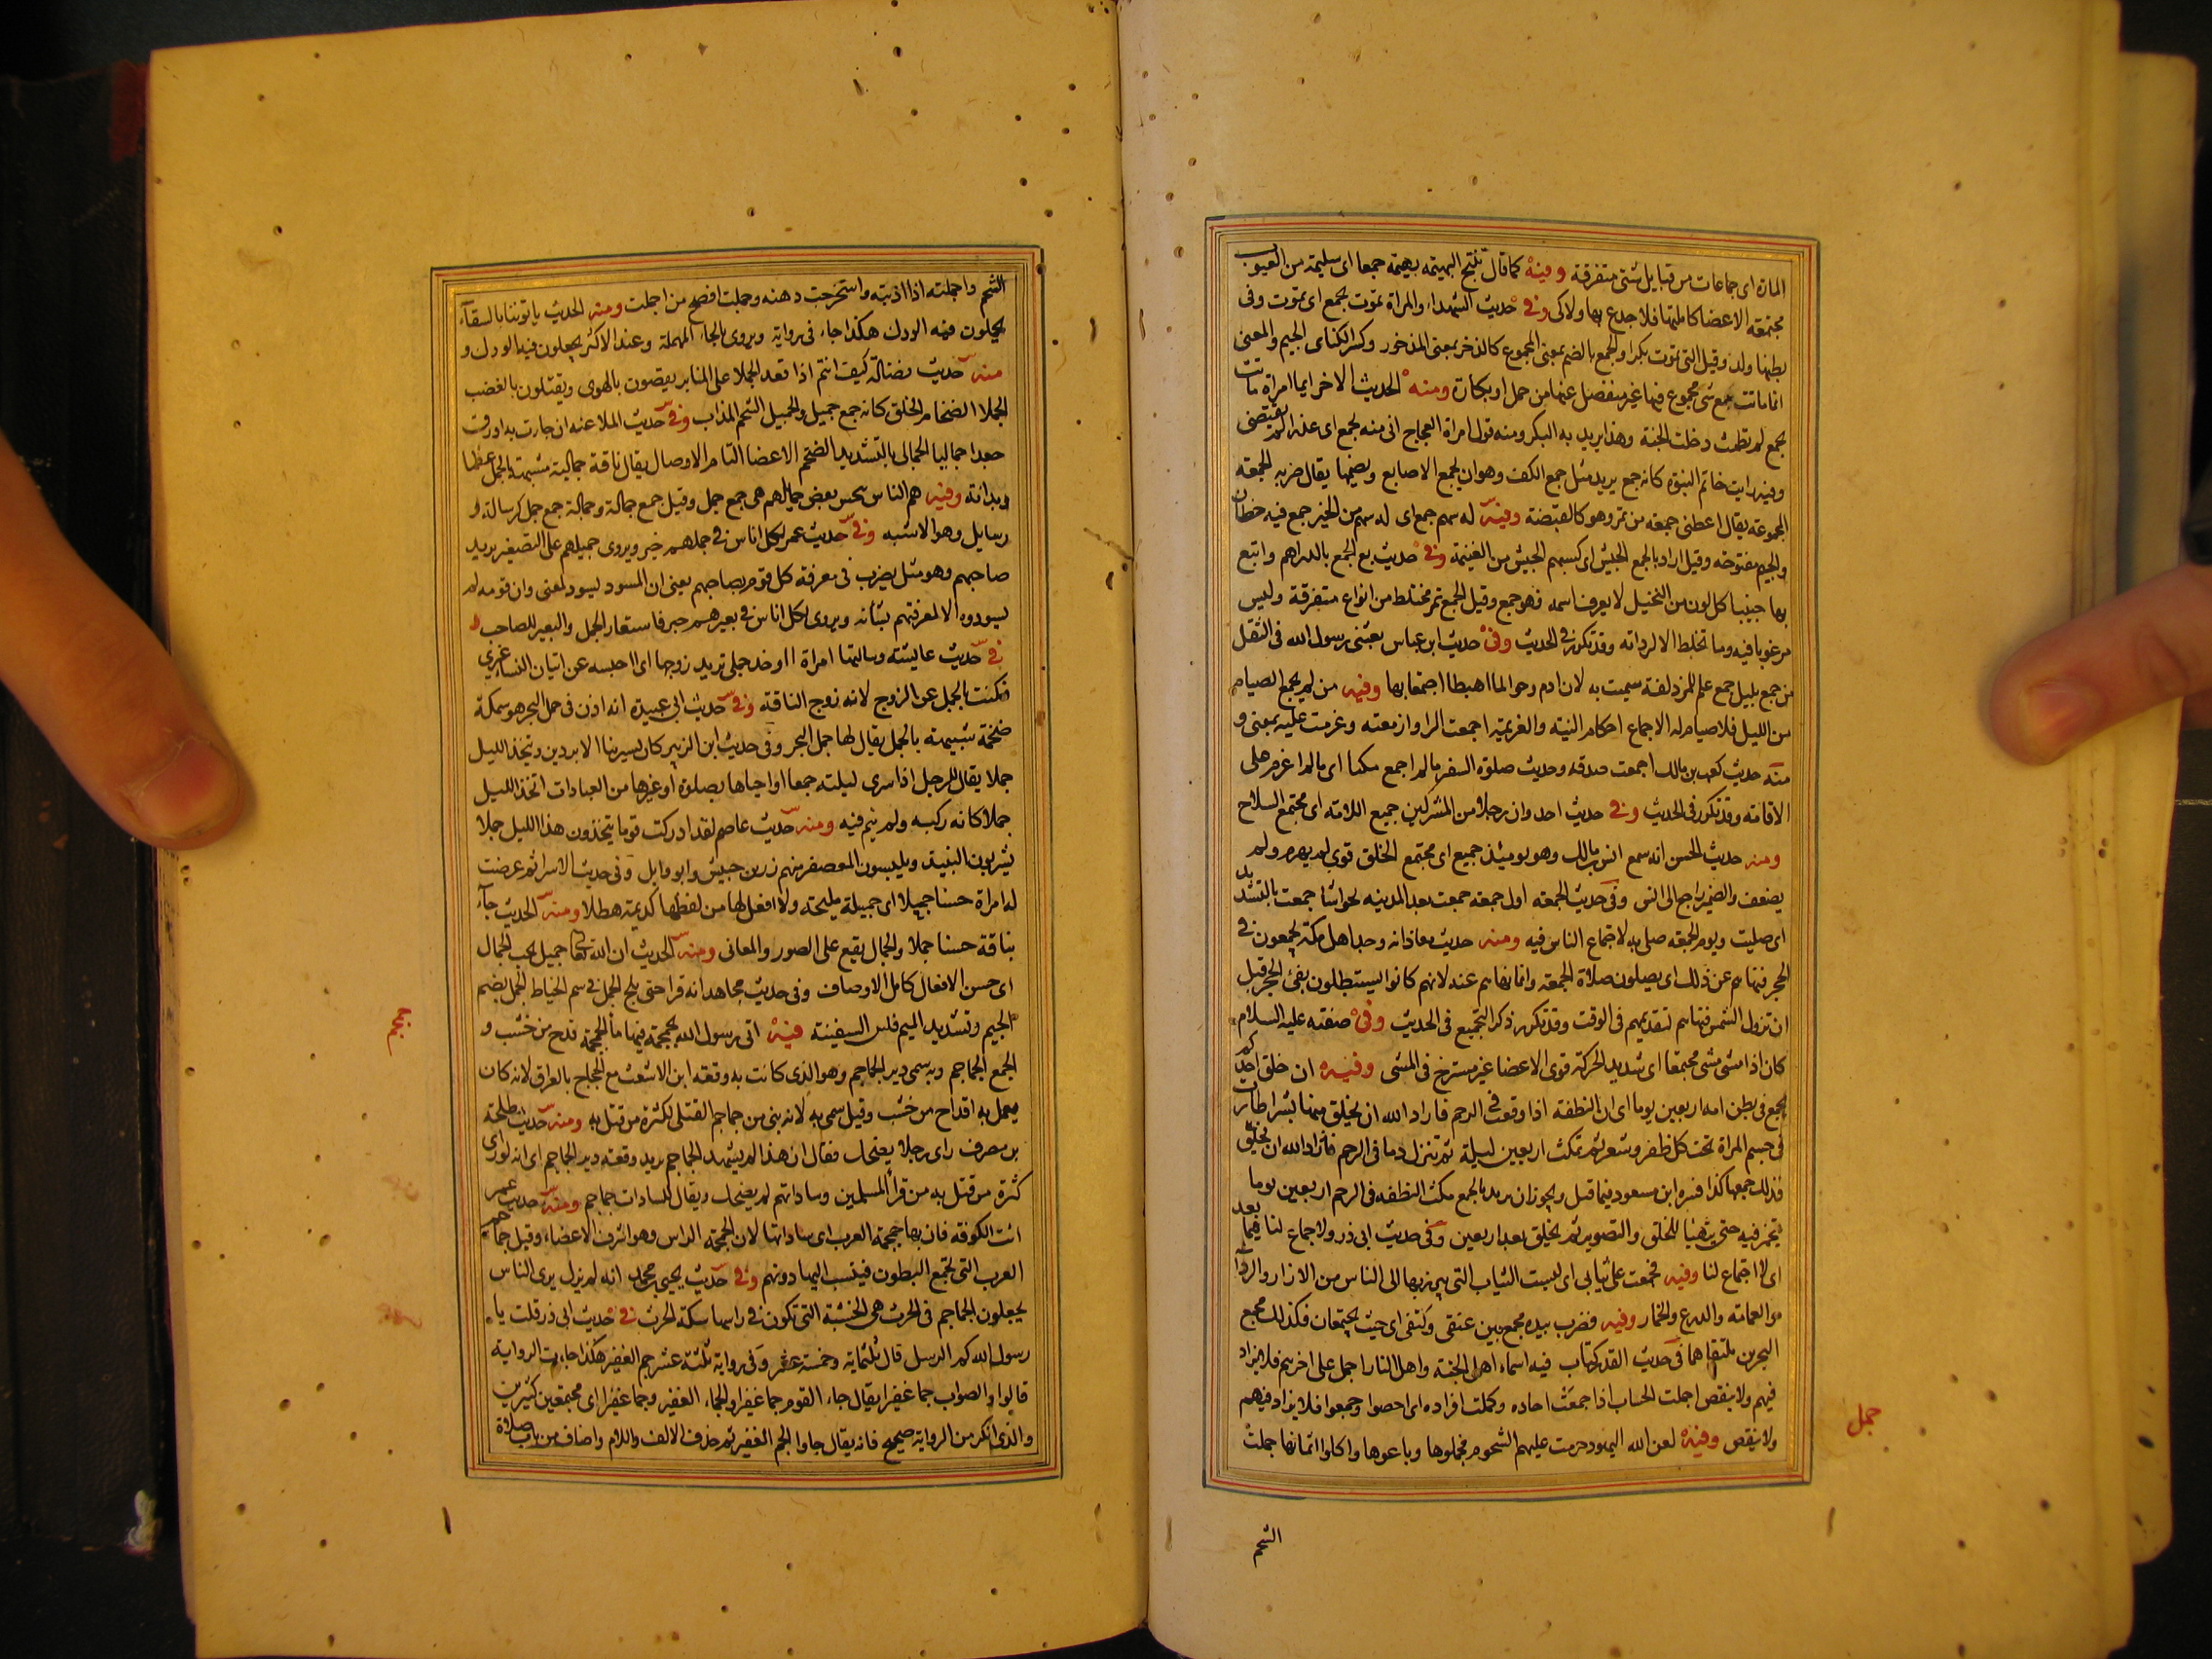 المارة اى جماعات من قبايل شتى متفرقة وفيه كما قال تنتج البهيمة بهيمة جمعا اى سليمة من العيوب
مجتمعة الاعضا كاملتها فلا جدع بها ولا كى وفى حديث الشهداء والمراة تموت بجمع اى تموت وفى
بطنها ولد وقيل التى تموت بكرا والجمع بالضم بمعنى المجموع كالذخر بمعنى المذخور وكسر الكسائى الجيم والمعنى
انما ماتت مع شى مجموع فيها غير منفصل عنها من حمل او بكارة ومنه الحديث الاخر ايما امراة ماتت
بجمع لم تطمث دخلت الجنة وهذا يريد به البكر ومنه قول امراة العجاج انى منه بجمع اى عذرا لم يقتضنى
وفيه رايت خاتم النبوة كانه جمع يريد مثل جمع الكف وهو ان يجمع الاصابع ويضمها يقال ضربه بجمعه
المجموعة يقال اعطنى جمعه من تمر وهو كالقبضة وفيه له سهم جمع اى له سهم من الخير جمع فيه حظان
والجيم مفتوحة وقيل اراد بالجمع الجيش اى كسهم الجيش من الغنيمة وفى حديث بع الجمع بالدراهم وابتع
بها جنيبا كل لون من النخيل لا يعرف اسمه فهو جمع وقيل الجمع تمر مختلط من انواع متفرقة وليس
مرغوبا فيه وما تخلط الا لرداته وقد تكرر فى الحديث وفى حديث ابن عباس بعثنى رسول الله فى الثقل
من جمع بليل جمع علم للمزدلفة سميت به لان ادم وحوا لما اهبطا اجتمعا بها وفيه من لم يجمع الصيام
من الليل فلا صيام له الاجماع احكام النية والعزيمة اجمعت الراى وازمعته وعزمت عليه بمعنى و
منه حديث كعب بن مالك اجمعت صدقه وحديث صلوة السفر ما لم اجمع مكثا اى ما لم اعزم على
الاقامة وقد تكرر فى الحديث وفى حديث احد وان رجلا من المشركين جميع اللامة اى مجتمع السلاح
ومنه حديث الحسن انه سمع انس بن مالك وهو يومئذ جميع اى مجتمع الخلق قوى لم يهرم ولم
يضعف والضمير راجع الى انس وفى حديث الجمعة اول جمعة جمعت بعد المدينه بجواثا جمعت بالتشديد
اى صليت ويوم الجمعة صلى به لاجتماع الناس فيه ومنه حديث معاذ انه وجد اهل مكة يجمعون فى
الحجر فنهاهم عن ذلك اى يصلون صلاة الجمعة وانما نهاهم عنه لانهم كانوا يستظلون بفئ الحجر قبل
ان تزول الشمس فنهاهم لتقديمهم فى الوقت وقد تكرر ذكر التجميع فى الحديث وفى صفته عليه السلام
كان اذا مشى مشى مجتمعا اى شديد الحركة قوى الاعضا غير مسترخ فى المشى وفيه ان خلق احدكم
يجمع فى بطن امه اربعين يوما اى ان النطفة اذا وقعت فى الرحم فاراد الله ان يخلق منها بشرا طارت
فى جسم المراة تحت كل ظفر وشعر ثم تمكث اربعين ليلة ثم تنزل دما فى الرحم فاذا اراد الله ان يخلق
فذلك جمعها كذا فسره ابن مسعود فيما قيل ويجوز ان يريد بالجمع مكث النطفه فى الرحم اربعين يوما
يتخمر فيه حتى يتهيئا للخلق والتصوير ثم يخلق بعد اربعين وفى حديث ابى ذر ولا جماع لنا فيما بعد
اى لا اجتماع لنا وفيه فجمعت على ثيابى اى لبست الثياب التى يبرز بها الى الناس من الازار والردا
والعمامة والدرع والخمار وفيه فضرب بيده مجمع بين عنقى وكتفى اى حيث يجتمعان فكذلك مجمع
البحرين ملتقاهما فى حديث القدر كتاب فيه اسماء اهل الجنة واهل النار اجمل على اخرهم فلا يزاد
فيهم ولا ينقص اجملت الحساب اذا جمعت احاده وكملت افراده اى احصوا وجمعوا فلا يزاد فيهم
ولا ينقص وفيه لعن الله اليهود حرمت عليهم الشحوم فجملوها وباعوها واكلوا اثمانها جملت
جمل
الشحم
الشحم واجملته اذا اذبته واستخرجت دهنه وجملت افصح من اجملت ومنه الحديث ياتوننا بالسقاء
يجملون فيه الودك هكذا جاء فى رواية ويروى بالحاء المهملة وعند الاكثر يجعلون فيه الودك و
منه حديث فضالة كيف انتم اذا قعد الجملا على المنابر يقضون بالهوى ويقتلون بالغضب
الجملا الضخام الخلق كانه جمع جميل والجميل الشحم المذاب وفى حديث الملاعنه ان جاءت به اورق
جعدا جماليا الجمالى بالتشديد الضخم الاعضا التام الاوصال يقال ناقة جمالية مشبهة بالجمل عظما
وبدانة وفيه هم الناس بنحر بعض جمايلهم هى جمع جمل وقيل جمع جمالة وجمالة جمع جمل كرسالة و
رسايل وهو الاشبه وفى حديث عمر لكل اناس فى جملهم خبر ويروى جميلهم على التصغير يريد
صاحبهم وهو مثل يضرب فى معرفة كل قوم بصاحبهم يعنى ان المسود ليسود لمعنى وان قومه لم
يسودوه الا لمعرفتهم بشانه ويروى لكل اناس فى بعيرهم خبر فاستعار الجمل والبعير للصاحب و
فى حديث عايشة وسالتها امراة ااوخذ جملى تريد زوجها اى احبسه عن اتيان النسا غيرى
فكنت بالجمل عن الزوج لانه زوج الناقة وفى حديث ابى عبيدة انه اذن فى جمل البحر هو سمكة
ضخمة شبيهة بالجمل يقال لها جمل البحر وفى حديث ابن الزبير كان يسير بنا الابردين ويتخذ الليل
جملا يقال للرجل اذا سرى ليلته جمعا او احياها بصلوة او غيرها من العبادات اتخذ الليل
جملا كانه ركبه ولم ينم فيه ومنه حديث عاصم لقد ادركت قوما يتخذون هذا الليل جملا
يشربون النبيذ ويلبسون المعصفر منهم زر بن حبيش وابو وايل وفى حديث الاسرا ثم عرضت
له امراة حسنا جملا اى جميلة مليحة ولا افعل لها من لفظها كديمة هطلا ومنه الحديث جاء
بناقة حسنا جملا والجمال يقع على الصور والمعانى ومنه الحديث ان الله تعالى جميل يحب الجمال
اى حسن الافعال كامل الاوصاف وفى حديث مجاهد انه قرا حتى يلج الجمل فى سم الخياط الجمل بضم
الجيم وتشديد الميم قلس السفينة فيه اتى رسول الله بجمجمة فيها ما الجمجمة قدح من خشب و
جمجم
الجمع الجماجم وبه سمى دير الجماجم وهو الذى كانت به وقعة ابن الاشعث مع الحجاج بالعراق لانه كان
يعمل به اقداح من خشب وقيل سمى به لانه بنى من جماجم القتلى لكثرة من قتل به ومنه حديث طلحة
بن مصرف راى رجلا يضحك فقال ان هذا لم يشهد الجماجم يريد وقعة دير الجماجم اى انه لو راى
كثرة من قتل به من قرا المسلمين وساداتهم لم يضحك ويقال للسادات جماجم ومنه حديث عمر
ائت الكوفة فان بها جمجمة العرب اى ساداتها لان الجمجمة الراس وهو اشرف الاعضاء وقيل جماجم
العرب التى تجمع البطون فينسب اليها دونهم وفى حديث يحيى بن محمد انه لم يزل يرى الناس
يجعلون الجماجم فى الحرث هى الخشبة التى تكون فى راسها سكة الحرث فى حديث ابى ذر قلت يا
رسول الله كم الرسل قال ثلثماية وخمسة عشر وفى رواية ثلثة عشر جم الغفير هكذا جاءت الرواية
قالوا والصواب جما غفيرا يقال جاء القوم جما غفيرا والجماء الغفير وجما غفيرا اى مجتمعين كثيرين
والذى انكر من الرواية صحيح فانه يقال جاوا الجم الغفير ثم حذف الالف واللام واضاف من باب صلاة